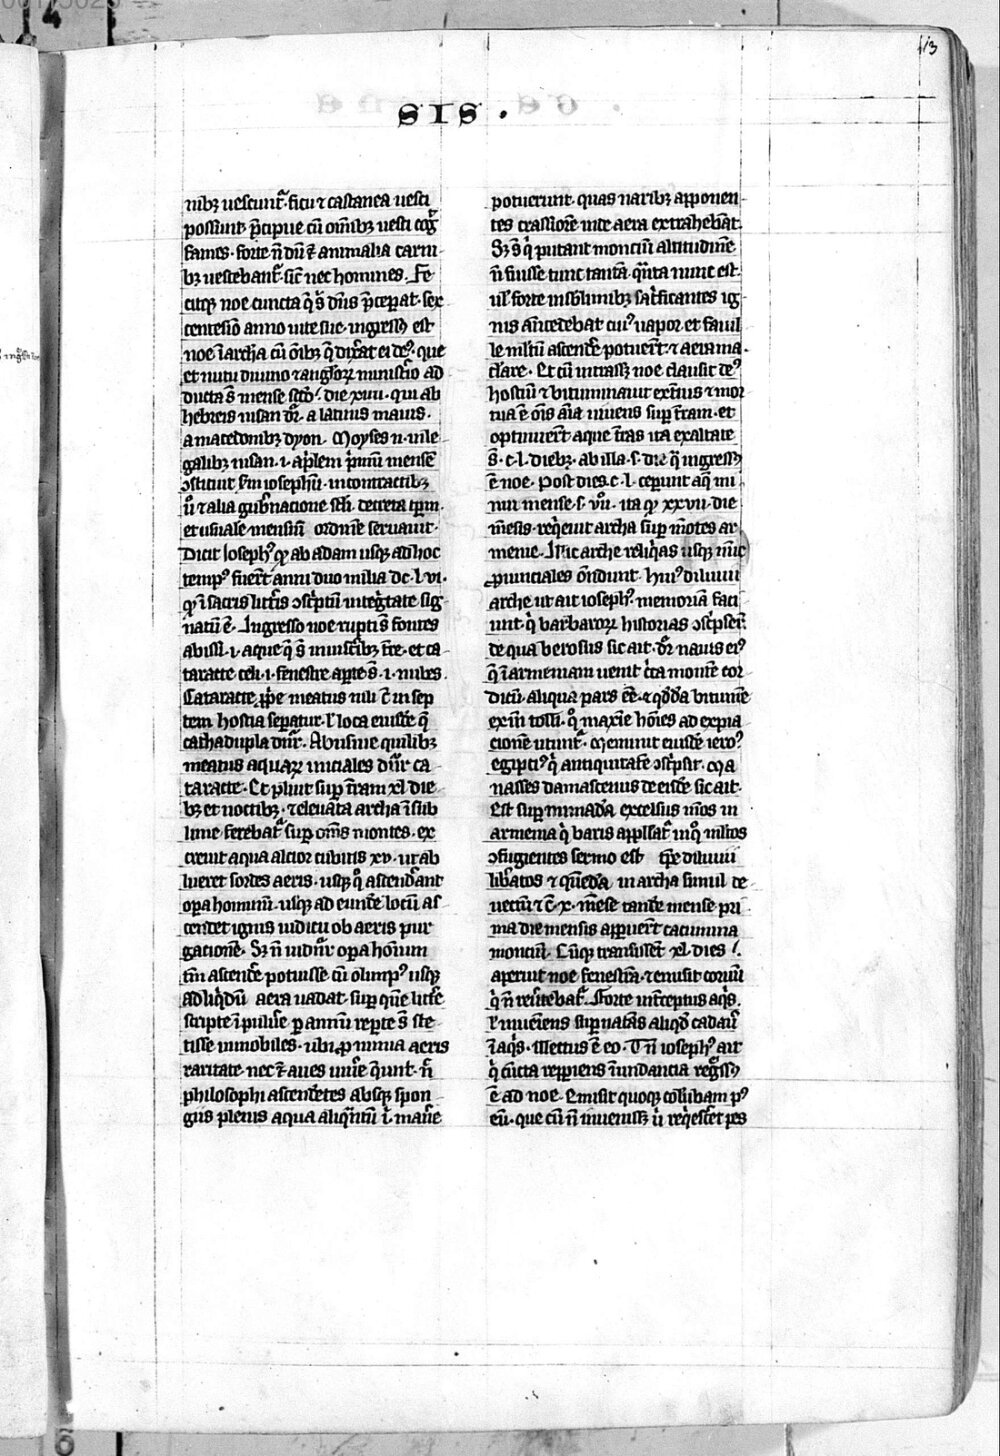 13
SIS .
nibꝫ uescunt᷑· ficu ⁊ castanea uesci
possunt p̄cipue cū om̄ibꝫ uesci cog̾
fames· forte n̄ dū ē aīmalia carni
bꝫ uescebant᷑ sic̄ nec homines. Fe
citqꝫ noe cuncta q̄ s̾ dn̄s p̄ceperat· sex
centesīo anno uite sue· ingress᷒ est
noe ī archa cū om̄ibꝫ q̄ dixerat ei de᷒· que
et nutu diuino ⁊ angl̾oꝝ minist̾io ad
ducta s̄ mense sc̄do· die xvii· qui ab
hebreis nisan dr̄· a latinis maius·
a macedonibꝫ dyon· Moyses n̄· in le
galibꝫ nisan· i· ap̾lem p̾mū mensē
ɔstituit s̄m iosephū· in contractibꝫ
ū ⁊ alia gub̾nacione sc̄li· decreta tp̄m·
et usuale mensiū ordinē seruauit·
Dicit Ioseph᷒ ꝙ ab adam usqꝫ ad hoc
temp᷒ fuer̄t anni duo milia dc· l· vi·
ꝙ ī sacris litt̾is ɔsc̾ptū integ̾tate sig
natū ē· Ingresso noe rupti s̄ fontes
abissi· i· aque q̄ s̄ in uisc̾ibꝫ t̾re· et ca
taracte celi· i· fenestre ap̾te s̄· i· nubes·
Cataracte ꝓp̾e meatus nili ē in sep
tem hostia sep̾atur· l̾ loca eiusdē q̄
cathadupla dn̄r· Abusiue quilibꝫ
meatus aquaꝝ iuuiales dn̄r ca
taracte· Et pluit sup̾ t̾ram xl die
bꝫ et noctibꝫ· ⁊ eleuata archa ī sub
lime ferebat᷑ sup̾ om̄s montes· ex
creuit aqua alcior cubitis xv· ut ab
lueret sordes aeris· usqꝫ q̊ ascend̾ant
opera hominū· usqꝫ ad eundē locū as
cendet ignis iudicii ob aeris pur
gacionē· Sꝫ n̄ uidn̄r opera hoīum
tm̄ ascend̾e potuisse cū olimp᷒ usqꝫ
ad liq̾dū aera uadat· sup̾ quē litt̾e
scripte ī puluē p annū rep̾te s̄ ste
tisse immobiles· ubi ꝓ nimia aeris
raritate nec ē aues uiu̾e q̾unt· n̄
philosophi ascendētes absqꝫ spon
giis plenis aqua aliq̾ntū ī· man̾e
potuerunt· quas naribꝫ apponen
tes crassiorē inde aera extrahebāt
Sꝫ s̄ q̾ putant monciū altitudinē
n̄ fuisse tunc tantā q̾nta nunc est·
ul̾ forte in sublimibꝫ sac̾ficantes ig
nis accedebat cui᷒ uapor et fauil
le m̾ltū ascend̾e potuer̄t· ⁊ aera ma·
c̾lare· Et cū intrass̾ noe clausit de᷒
hostiū ⁊ bituminauit ext̾ius ⁊ mor
tua ē om̄s aīa uiuens sup̾ t̾ram· et
optinuer̄t aque t̾ras ita exaltate
s̄· c· l· diebꝫ· ab illa· s· die q̄ ingress᷒
ē noe· Post dies· c· l· ceperunt aq̄ mi
nui mense· s· vii· ita ꝙ xxvii· die
mēsis· req̾euit archa sup̾ mōtes ar
menie· Huic arche reliq̾as usqꝫ nūc
ꝓuinciales ōndunt· Hui᷒ diluuii
arche ut ait ioseph᷒· memoriā faci
unt· q̾ barbaroꝝ historias ɔsc̾pser̄·
de qua berosus sic ait· dr̄ nauis ei᷒
q̄ ī armeniam uenit c̾ca montē cor
dicū· aliqua pars ēē· ⁊ q̾da bitumē
exīn tolli· q̊ maxīe hōies ad expia
cionē utunt᷑· Meminit eiusdē iero᷒
egipci᷒ q̾ antiquitatē ɔsc̾psit· Ma
nasses damascenus de eisdē sic ait·
Est sup̾ minada excelsus mōs in
armenia q̾ baris appell̾at᷑ in q̊ m̾ltos
ɔfugientes sermo est tp̄e diluuii
lib̾atos ⁊ quēda in archa simul de
uectū ⁊ ē· x· mēse tandē mense pri
ma die mensis appuer̄t cacumina
monciū· Cūqꝫ transissēt· xl· dies ⸵
aperuit noe fenestrā· ⁊ emisit coruū
q̾ n̄ reu̾tebat᷑· Forte int̾ceptus aq̾s·
l̾ inueniens sup̾natās aliqd̾ cadau̾
ī aq̾s· illectus ē eo· Vn̄ ioseph᷒ ait
q̾ cūcta repp̾iens īundancia reg̾ss᷒
ē ad noe· Emisit quoqꝫ colūbam p᷒
eū· que cū n̄ inueniss̾ ū req̾esc̾et pes